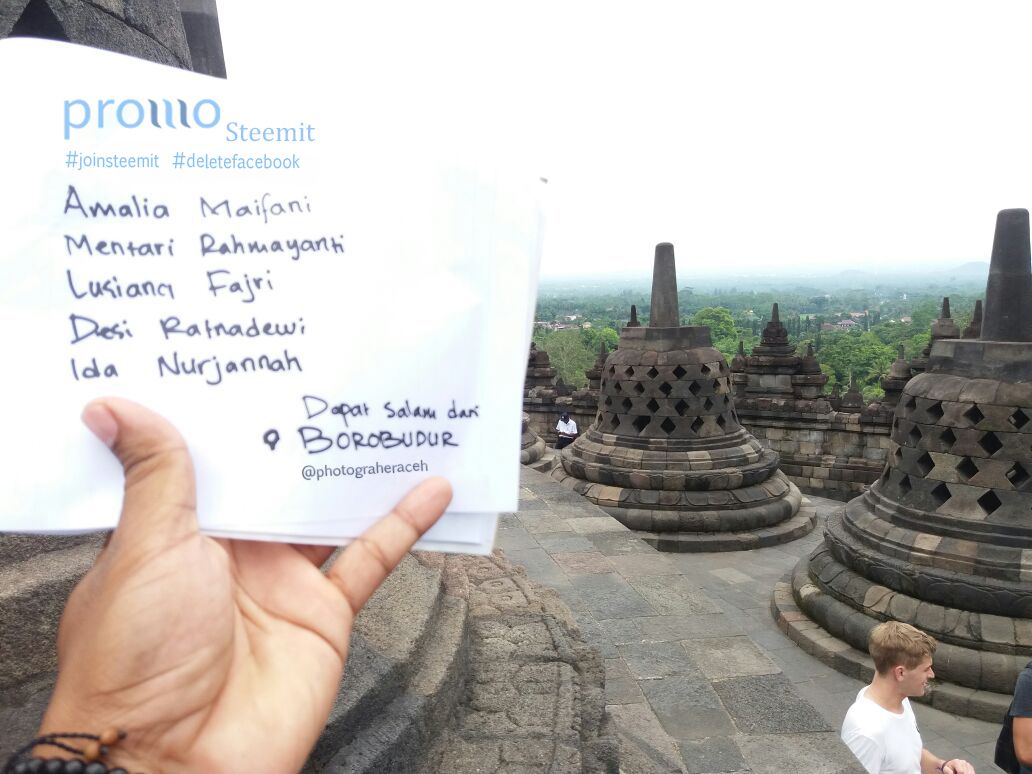 promo Steemit
#joinsteemit #deletefacebook
Amalia Maifani
Mentari Rahmayanti
Lusiana Fajri
Desi Ratnadewi
Ida Nurjannah
Dapat salam dari
BOROBUDUR
@photograheraceh